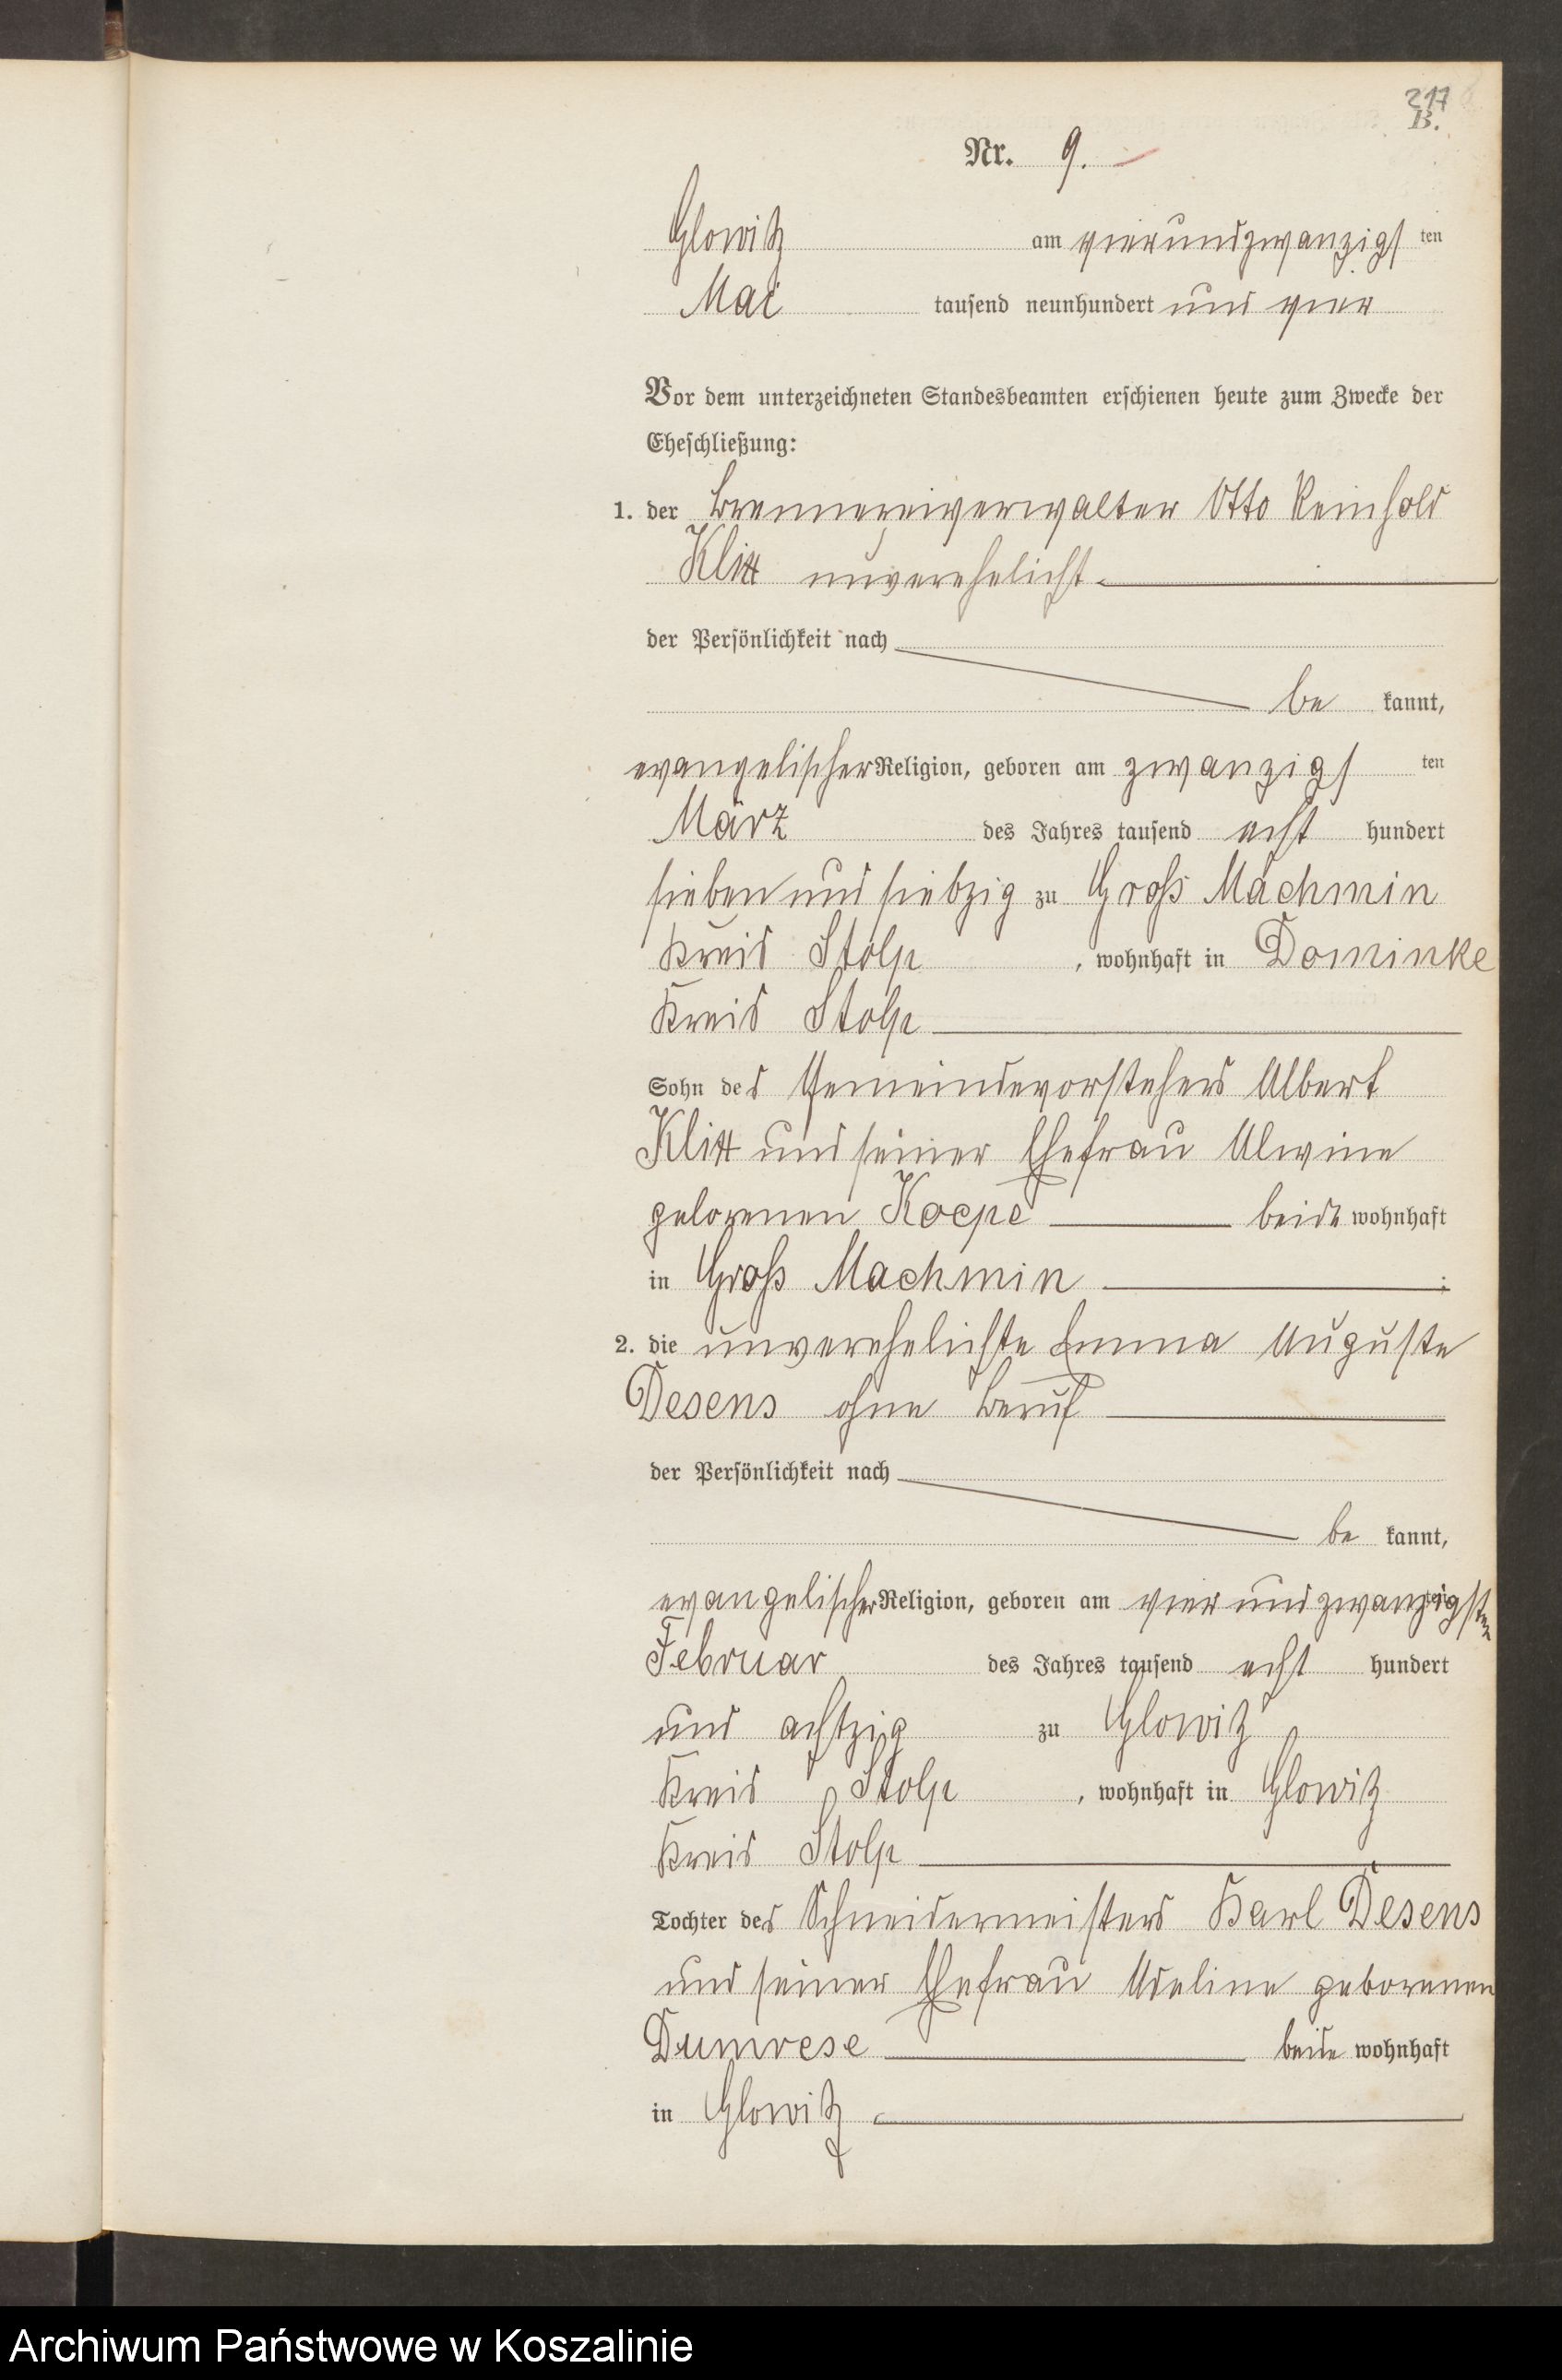 217
B.
Nr. 9.
Glowitz am vierundzwanzigsten
Mai tausend neunhundert und vier
Vor dem unterzeichneten Standesbeamten erschienen heute zum Zwecke der
Eheschließung:
1. der Brennereiverwalter Otto Reinhold
Klitt unverehelicht
der Persönlichkeit nach
be kannt,
evangelischer Religion, geboren am zwanzigsten
März des Jahres tausend acht hundert
sieben und siebzig zu Groß Machmin
Kreis Stolp, wohnhaft in Dominke
Kreis Stolp
Sohn des Gemeindevorstehers Albert
Klitt und seiner Ehefrau Alwine
geborenen Koepe beide wohnhaft
in Groß Machmin;
2. die unverehelichte Emma Auguste
Desens ohne Beruf
der Persönlichkeit nach
be kannt,
evangelischer Religion, geboren am vier und zwanzigsten
Februar des Jahres tausend acht hundert
und achtzig zu Glowitz
Kreis Stolp, wohnhaft in Glowitz
Kreis Stolp
Tochter des Schneidermeisters Karl Desens
und seiner Ehefrau Adeline geborenen
Dumrese beide wohnhaft
in Glowitz
Archiwum Państwowe w Koszalinie